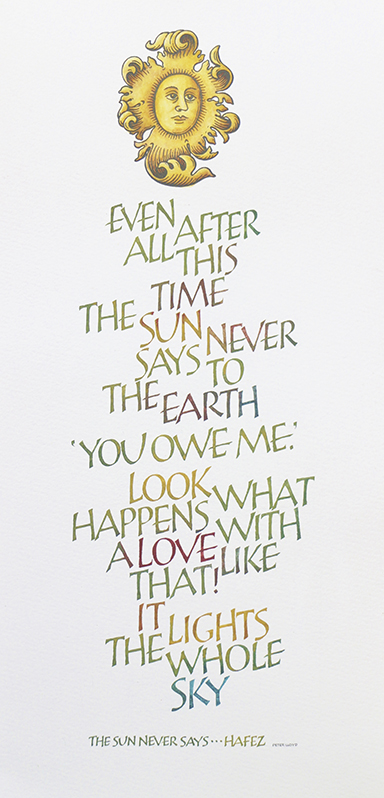 EVEN AFTER
ALL THIS
TIME
THE SUN NEVER
SAYS TO
THE EARTH
‘YOU OWE ME.’
LOOK WHAT
HAPPENS WITH
A LOVE LIKE
THAT!
IT LIGHTS
THE WHOLE
SKY
THE SUN NEVER SAYS ··· HAFEZ